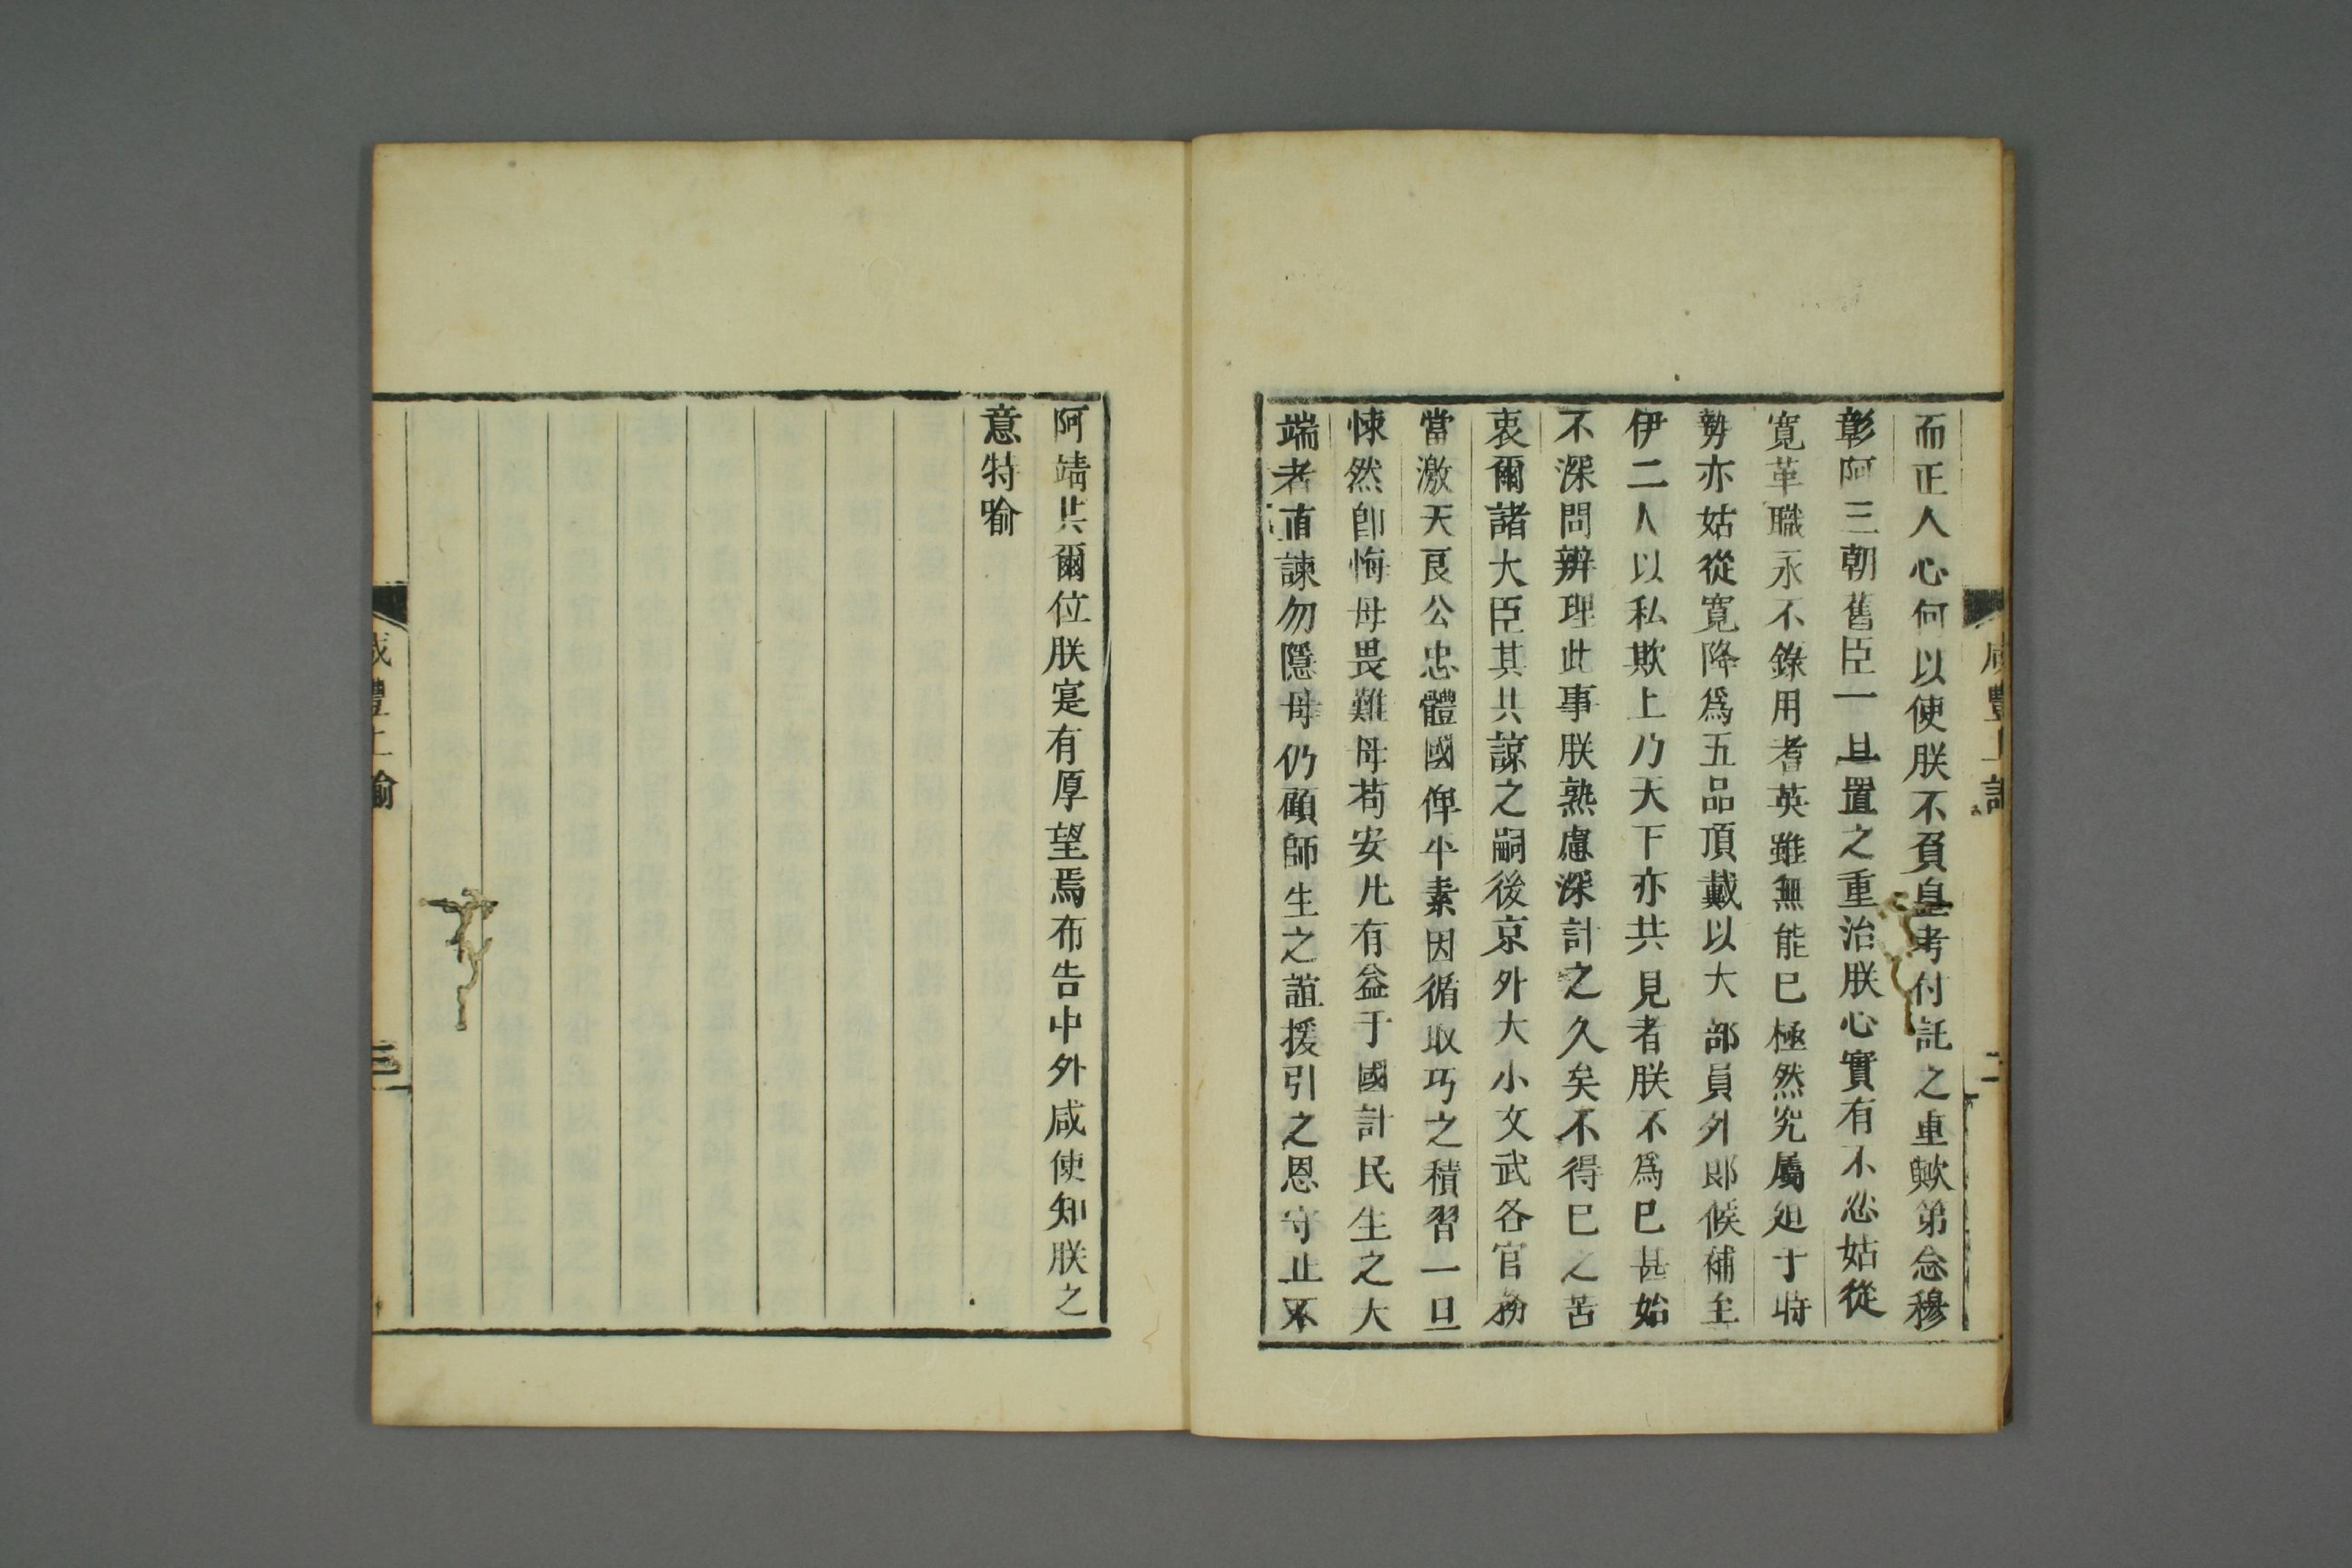 而正人心何以使朕不負皇考付託之重歟第念穆
彰阿三朝舊臣一旦置之重治朕心實有不忍姑從
寬革職永不錄用耆英雖無能已極然究屬廹于時
勢亦姑從寬降爲五品頂戴以大部員外郞候補至
伊二人以私欺上乃天下亦共見者朕不爲已甚始
不深問辨理此事朕熟慮深計之久矣不得已之苦
衷爾諸大臣其共諒之嗣後京外大小文武各官務
當激天良公忠體國俾平素因循取巧之積習一旦
悚然卽悔母畏難母苟安凡有益于國計民生之大
端者直諫勿隱母仍顧師生之誼援引之恩守止不
咸豐上諭
二
阿靖共爾位朕寔有厚望焉布告中外咸使知朕之
意特喻
咸豐上諭
三